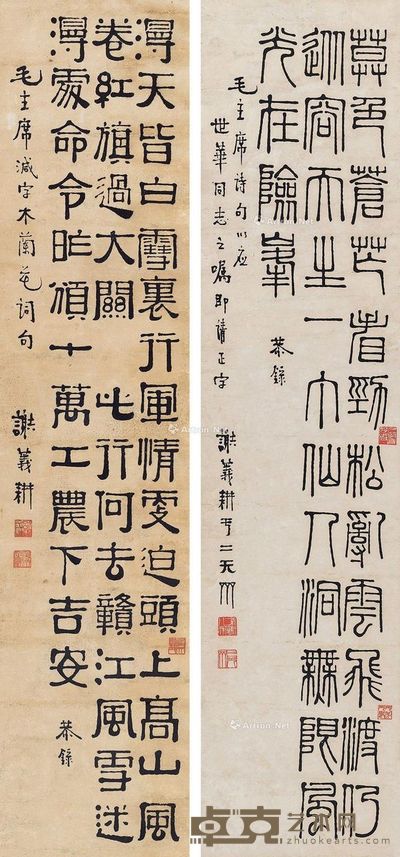 莫色蒼芒看勁松亂雲飛渡乃
從容天生一个仙人洞無限風
光在險峯 恭錄
毛主席詩句以應
世華同志之囑即請正字 謝義耕
漫天皆白雪裏行軍情更迫頭上高山風
卷紅旗過大關 此行何去贛江風雪迷
漫處命令昨頒十萬工農下吉安 恭錄
毛主席減字木蘭花詞句 謝義耕
Artron.Net
Artron.Net
卓克艺术网
zhuokearts.com